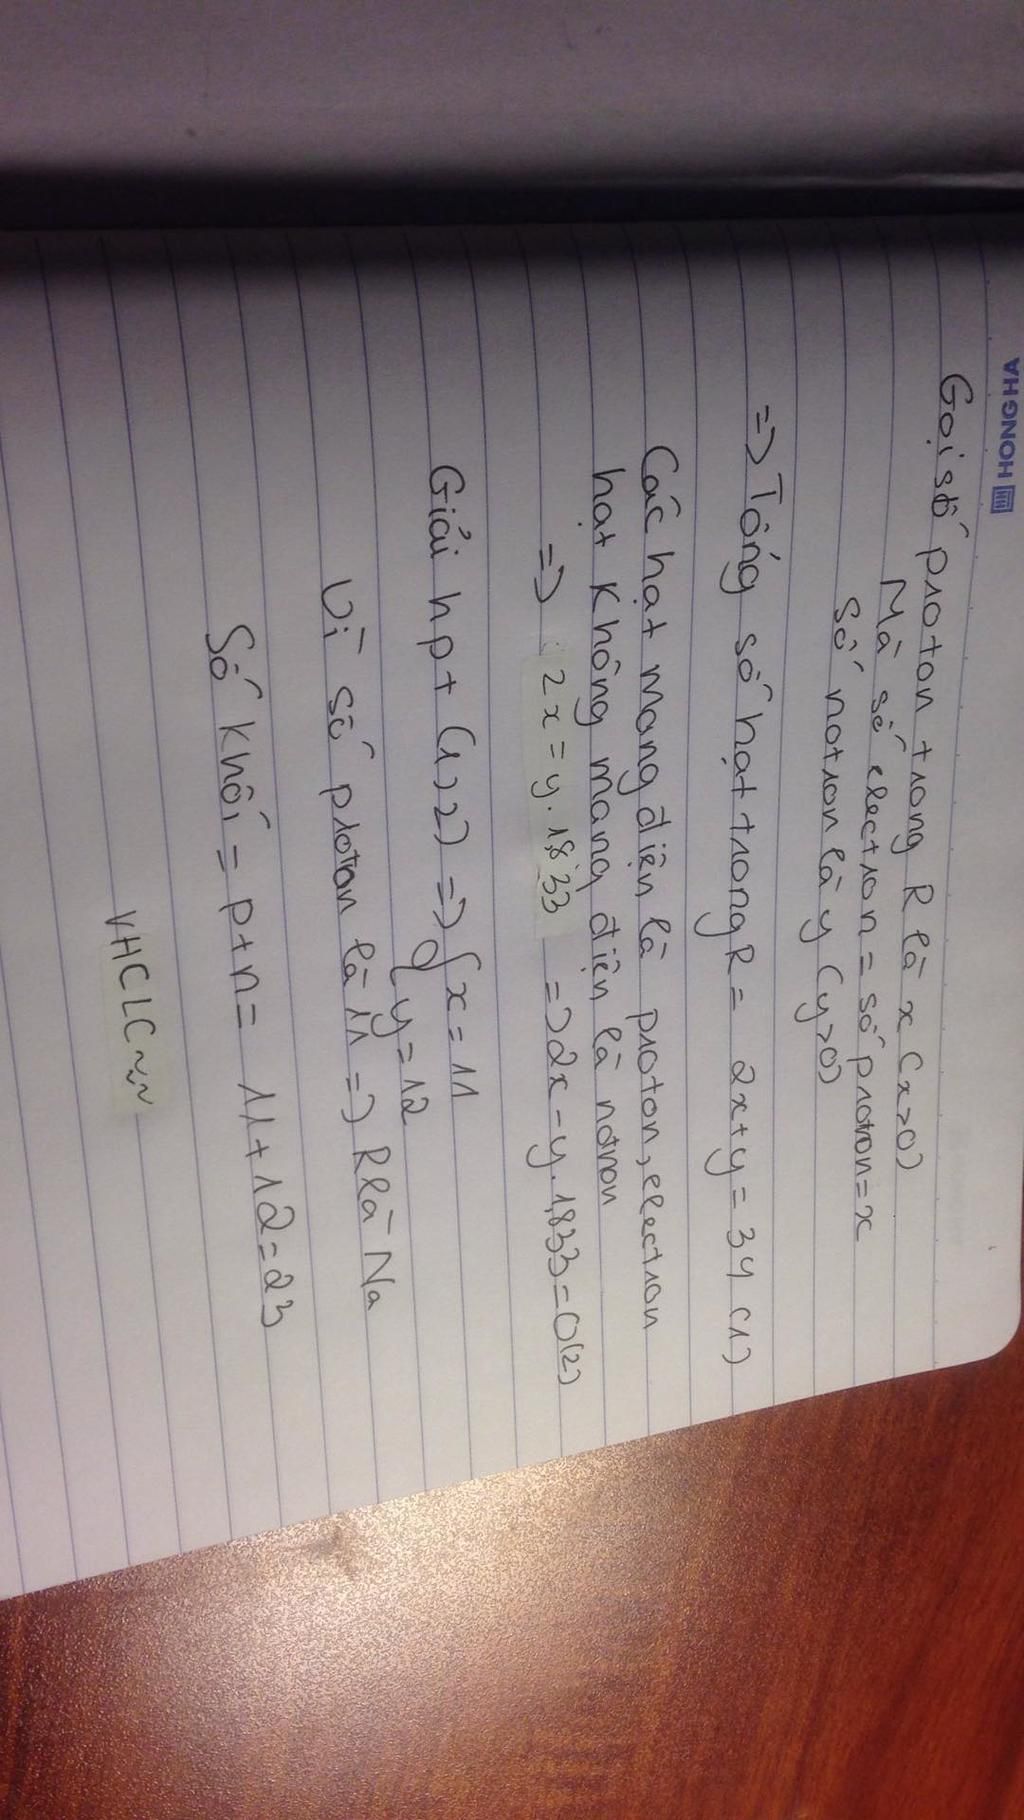 HONG HA
Gọi số proton trong R là x (x>0)
Mà số electron = số proton = x
Số notron là y (y>0)
=> Tổng số hạt trong R = 2x+y = 34 (1)
Các hạt mang điện là proton, electron
hạt không mang điện là notron
=> 2x = y. 1,833 => 2x - y. 1,833 = 0 (2)
Giải hpt (1,2) => { x = 11
y = 12
Vì số proton là 11 => R là Na
Số khối = p+n = 11+12=23
VHCLC~~